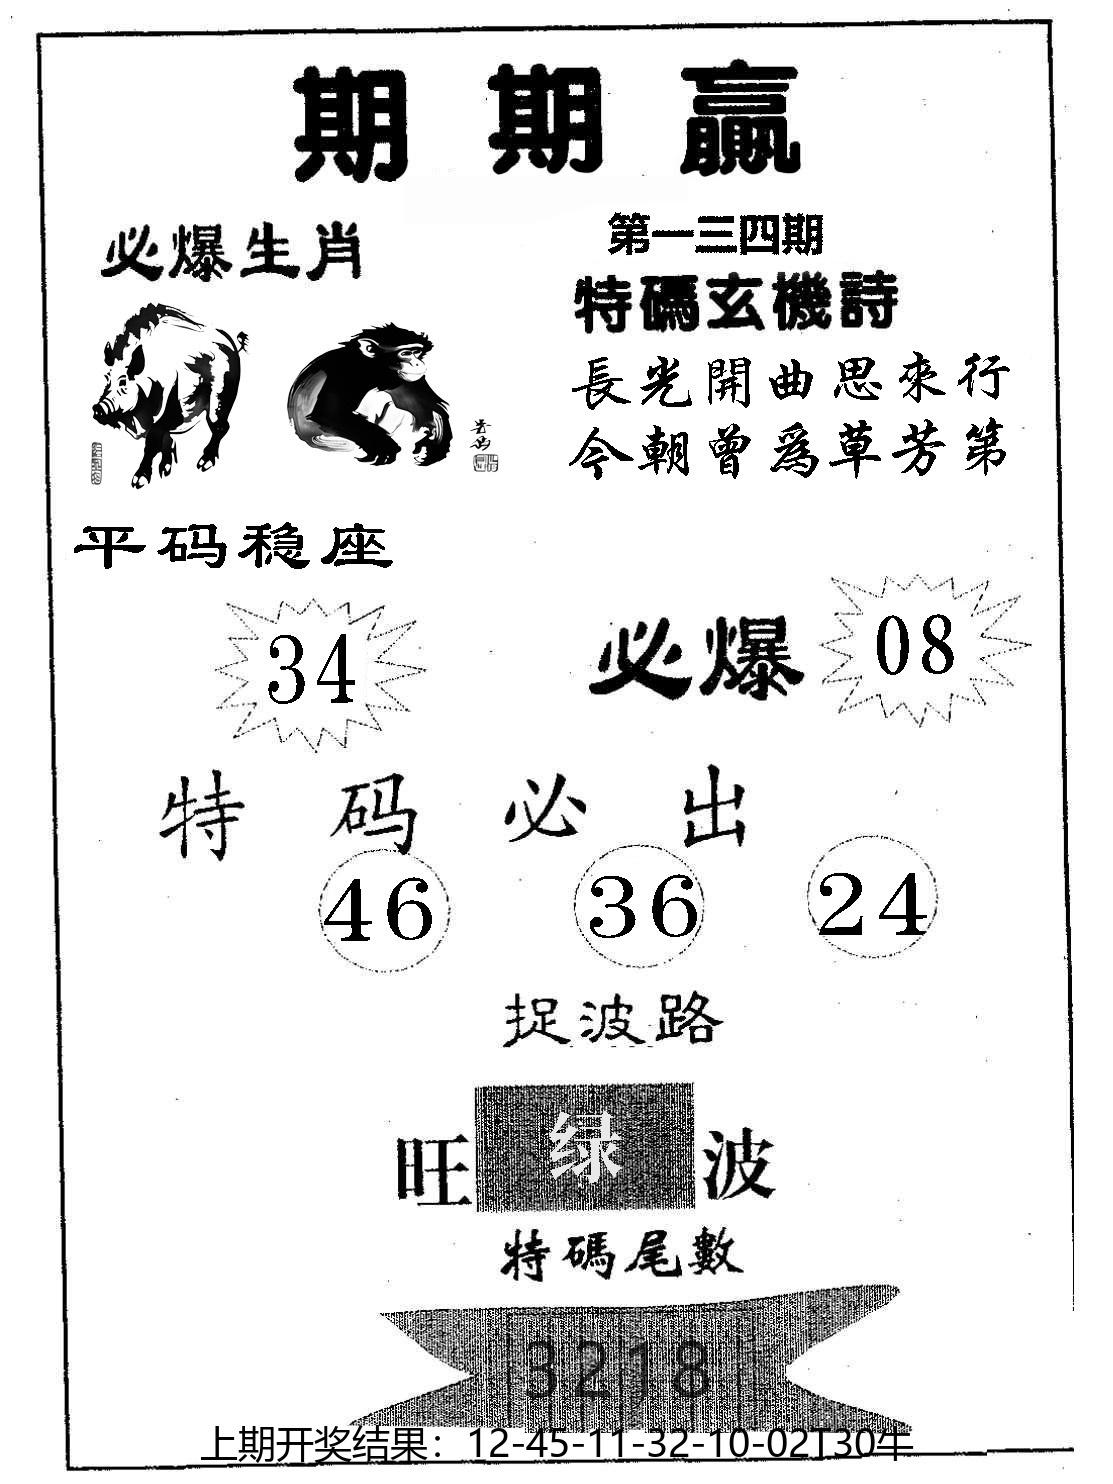 期期赢
必爆生肖
第一三四期
特碼玄機詩
長光開曲思來行
今朝曾爲草芳第
平码稳座
34
必爆 08
特码必出
46 36 24
捉波路
旺 绿 波
特碼尾數
3218
上期开奖结果：12-45-11-32-10-02T30牛